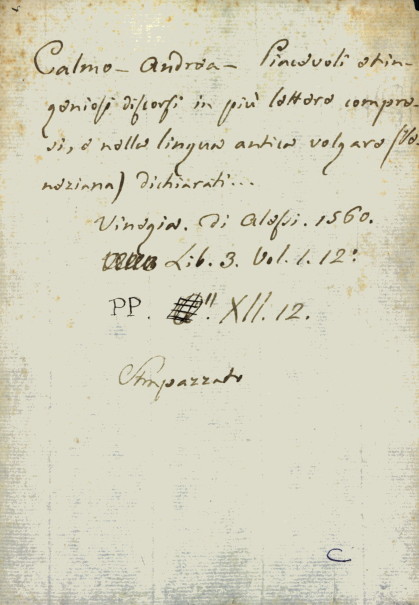 Calmo - Andrea - Piacevoli et in-
geniosi discorsi in più lettere compre-
si, e nella lingua antica volgare (Ve-
neziana) dichiarati...
Vinegia. Di Alessi. 1560.
Lib. 3. Vol. 1. 12°
PP. XII. 12.
Strapazzato
C